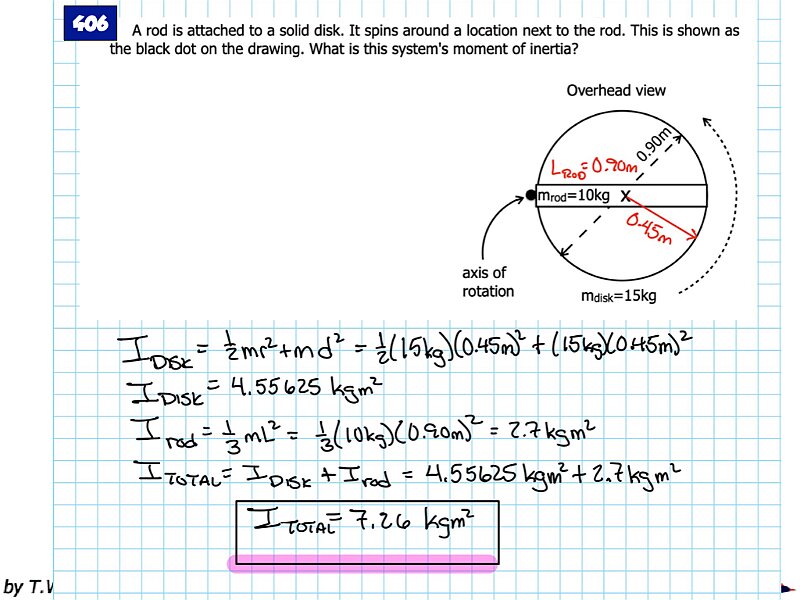 406
A rod is attached to a solid disk. It spins around a location next to the rod. This is shown as
the black dot on the drawing. What is this system's moment of inertia?
Overhead view
0.90m
L_ROD = 0.90m
m_rod=10kg X
0.45m
axis of
rotation
m_disk=15kg
I_DISK = ½mr² + md² = ½(15kg)(0.45m)² + (15kg)(0.45m)²
I_DISK = 4.55625 kgm²
I_rod = ⅓mL² = ⅓(10kg)(0.90m)² = 2.7kgm²
I_TOTAL = I_DISK + I_rod = 4.55625kgm² + 2.7kgm²
I_TOTAL = 7.26 kgm²
by T.